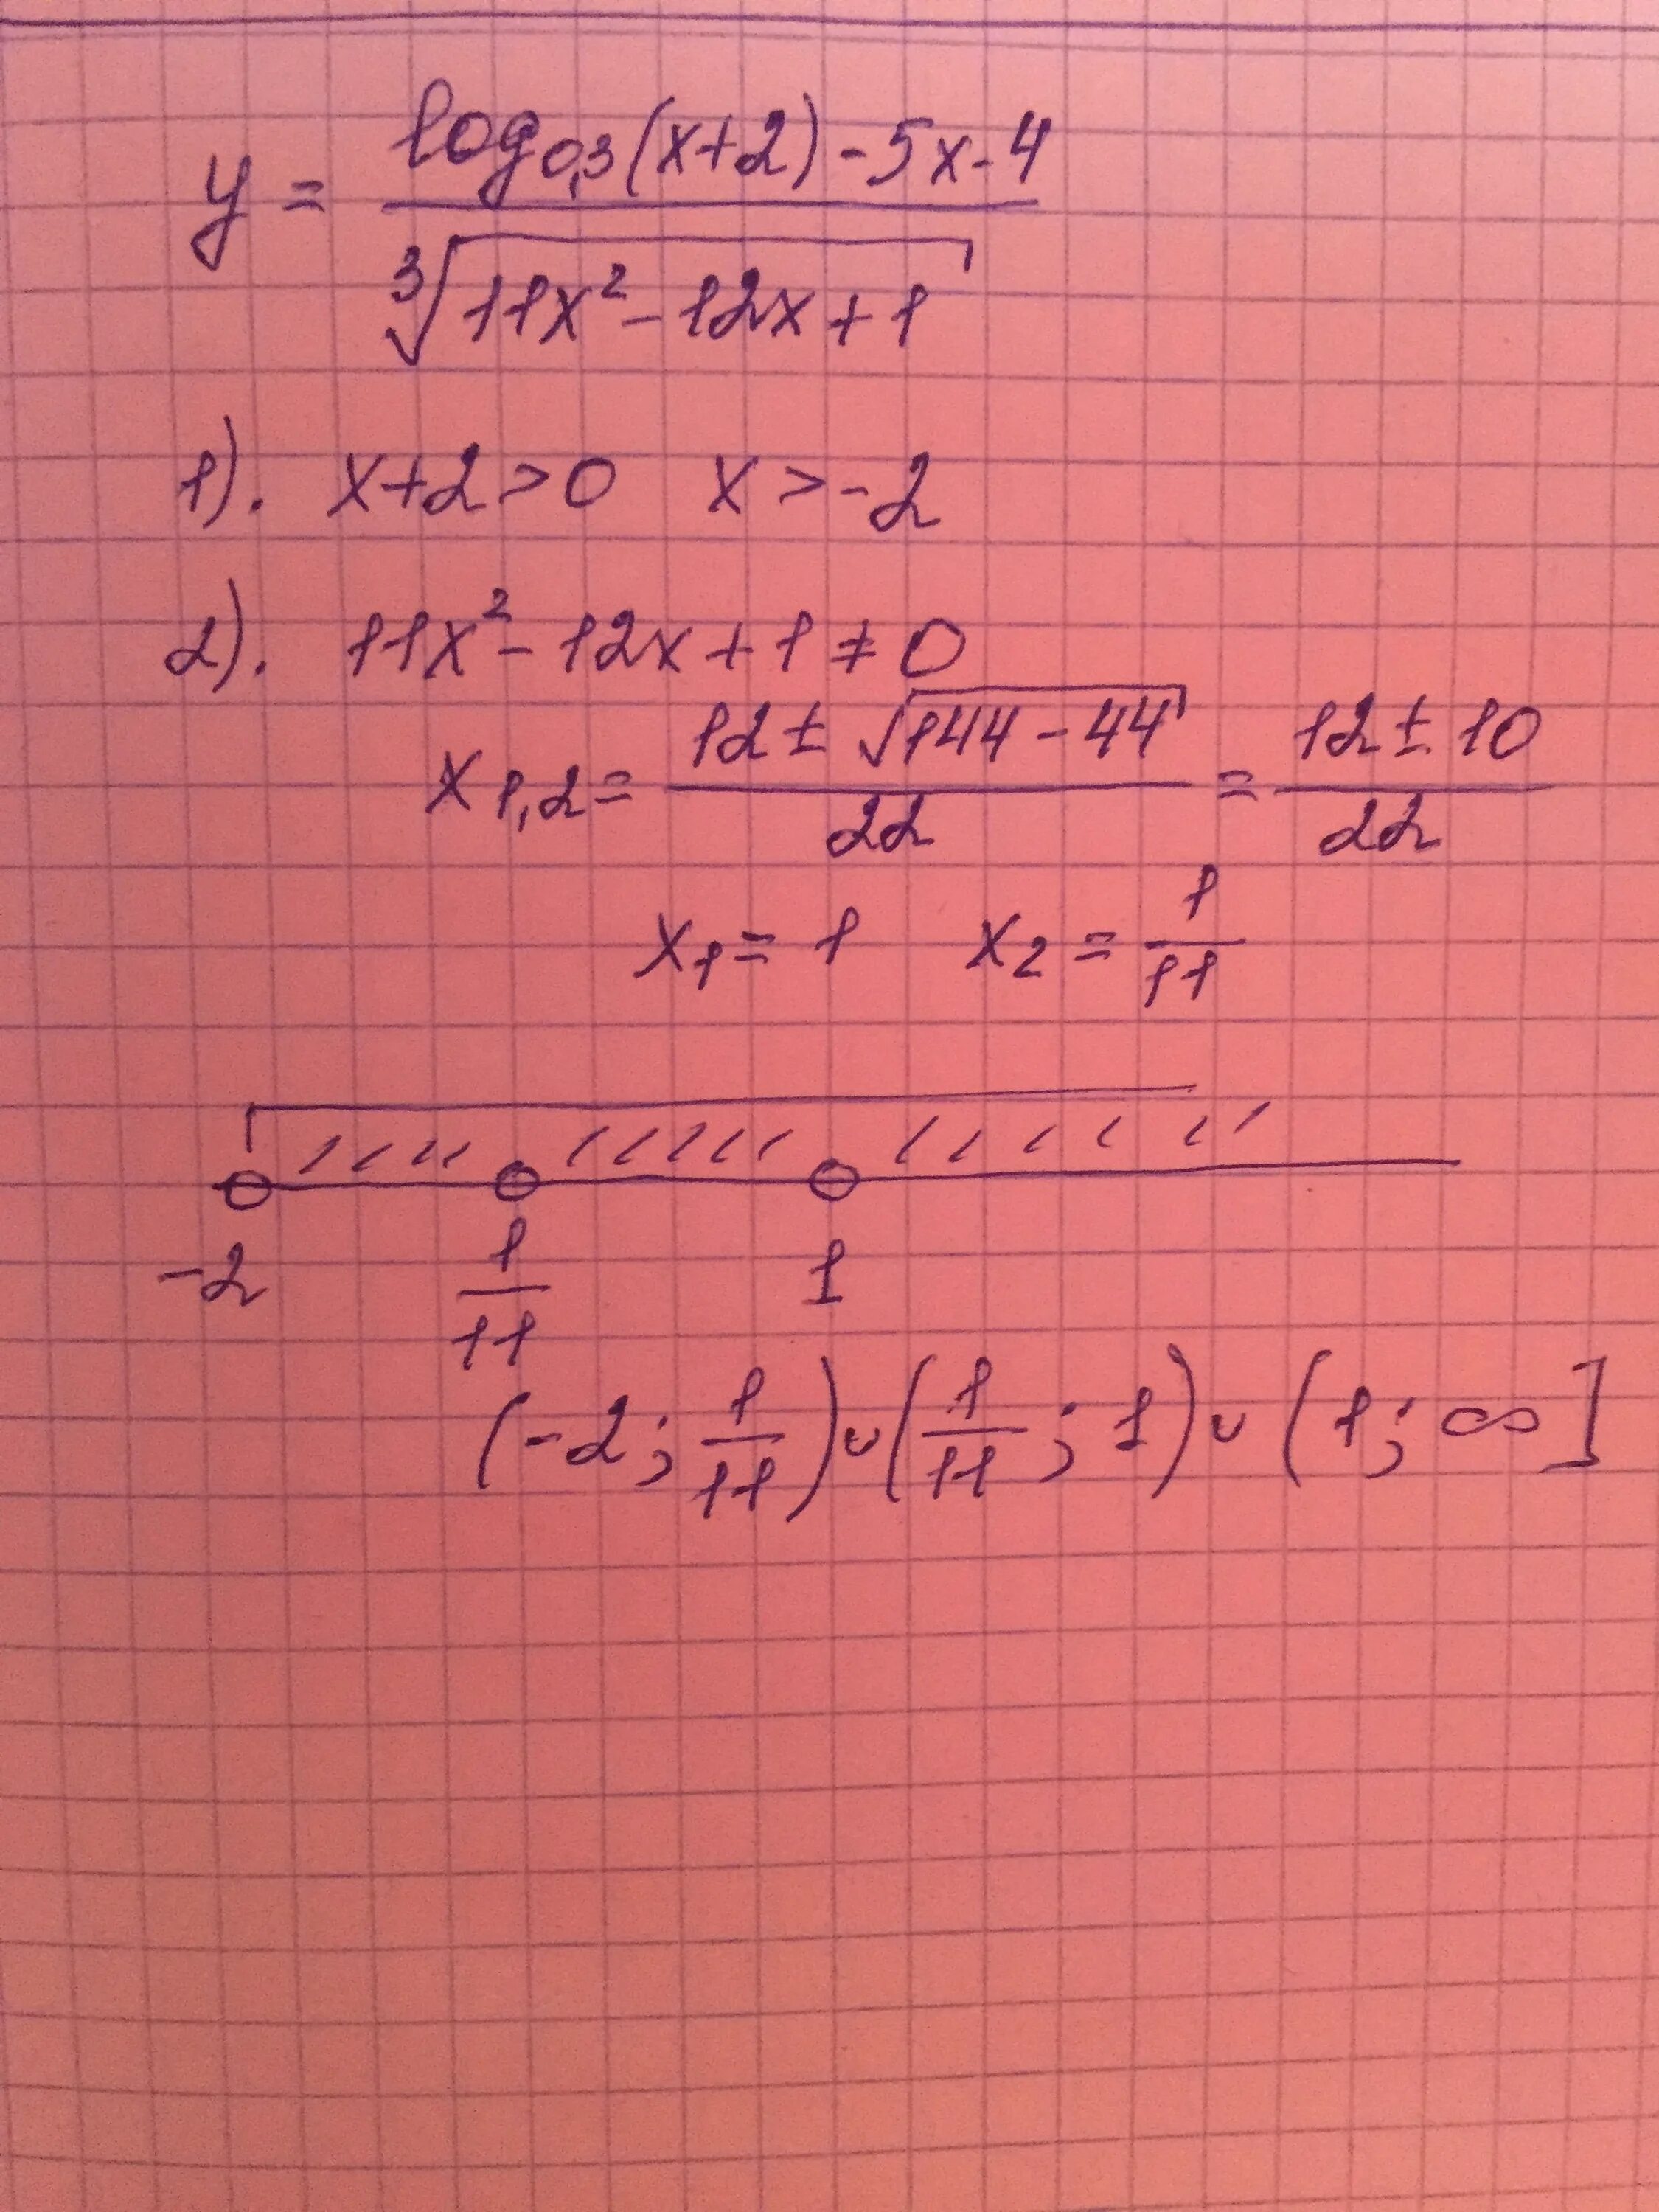 y = \frac{log_{0,3}(x+2) - 5x - 4}{\sqrt[3]{11x^2 - 12x + 1}}
1). x+2>0 x>-2
2). 11x^2 - 12x + 1 ≠ 0
x_{1,2} = \frac{12 ± \sqrt{144 - 44}}{22} = \frac{12 ± 10}{22}
x_1 = 1 x_2 = \frac{1}{11}
-2 \frac{1}{11} 1
(-2; \frac{1}{11}) ∪ (\frac{1}{11}; 1) ∪ (1; ∞]